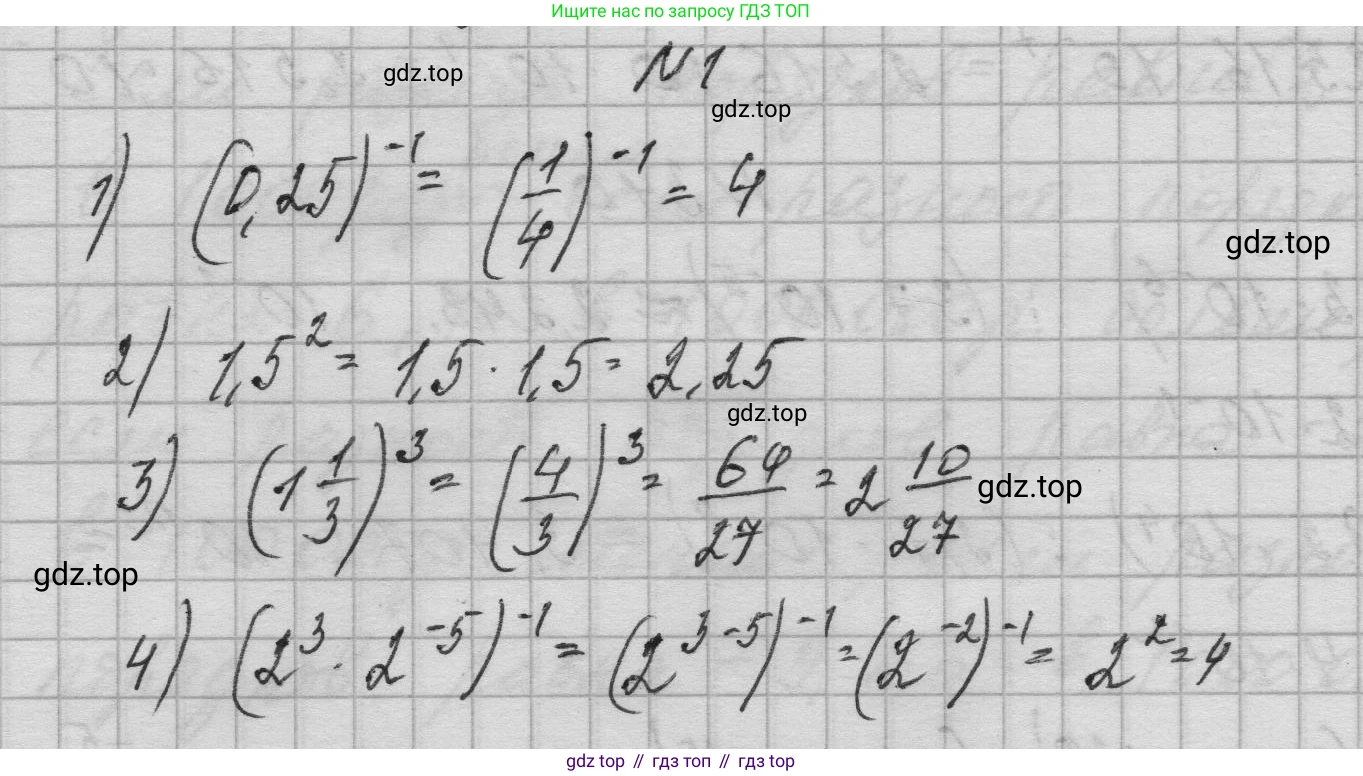 Ищите нас по запросу ГДЗ ТОП
N 1
gdz.top
gdz.top
1) (0,25)^{-1} = (1/4)^{-1} = 4
gdz.top
2) 1,5^2 = 1,5 · 1,5 = 2,25
gdz.top
3) (1 1/3)^3 = (4/3)^3 = 64/27 = 2 10/27
gdz.top
gdz.top
4) (2^3 · 2^{-5})^{-1} = (2^{3-5})^{-1} = (2^{-2})^{-1} = 2^2 = 4
gdz top // гдз топ // гдз top